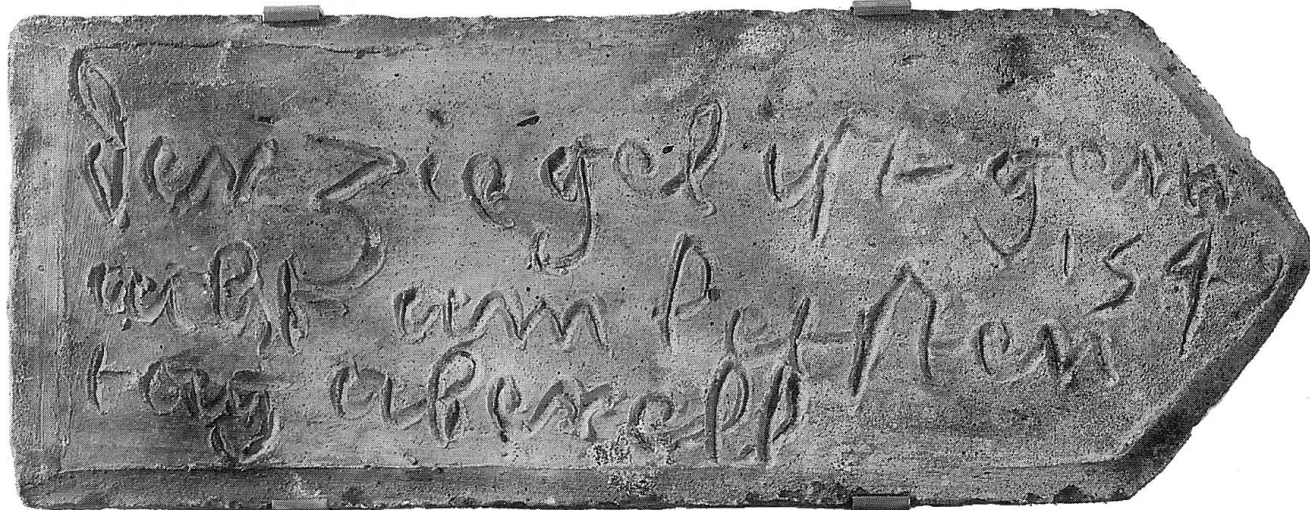 der ziegel ist gem
acht am letsten 1547
tag aberell